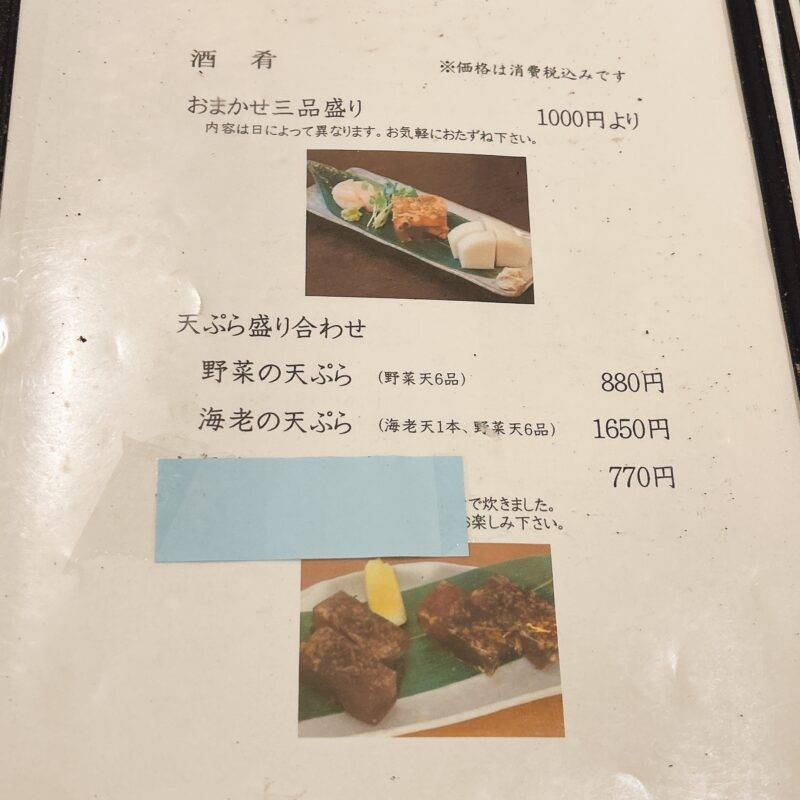 酒肴
※価格は消費税込みです
おまかせ三品盛り 1000円より
内容は日によって異なります。お気軽におたずね下さい。
天ぷら盛り合わせ
野菜の天ぷら (野菜天6品) 880円
海老の天ぷら (海老天1本、野菜天6品) 1650円
770円
で炊きました。
楽しみ下さい。